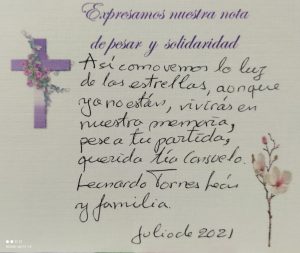 Expresamos nuestra nota
de pesar y solidaridad
Así como vemos la luz
de las estrellas, aunque
ya no están, vivirás en
nuestra memoria,
pese a tu partida,
querida tía Consuelo.
Leonardo Torres León
y familia.
Julio de 2021